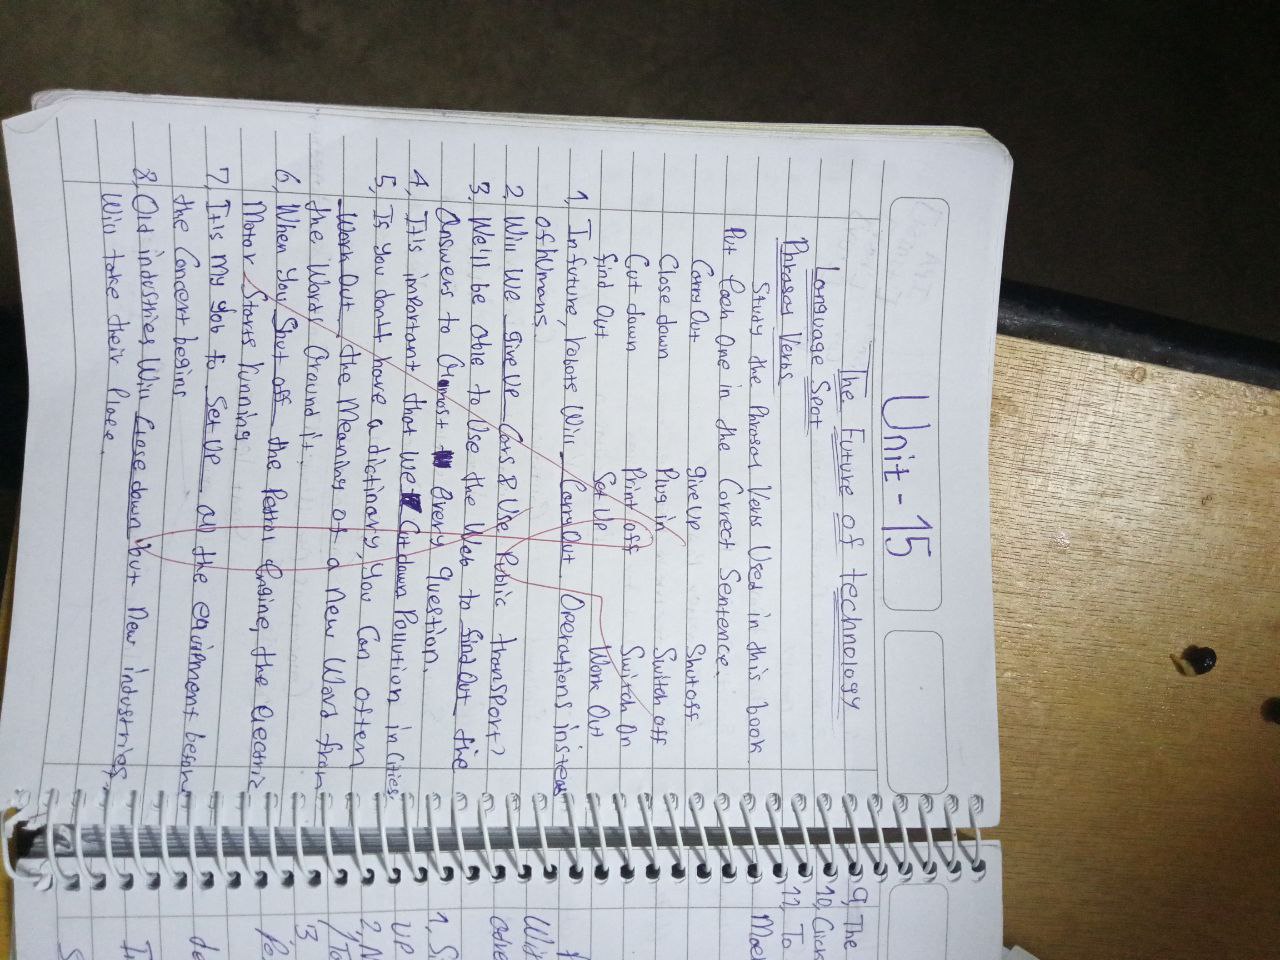 Unit - 15
The Future of technology
Language Spot
Phrasal Verbs
Study the Phrasal Verbs Used in this book.
Put Each One in the Correct Sentence.
Carry Out give Up Shut off
Close down Plug in Switch off
Cut down Print off Switch On
find Out Set Up Work Out
1, In future, robots Will Carry Out Operations instead
of humans.
2, Will We give Up Cars & Use Public transport?
3, We'll be able to Use the Web to find Out the
answers to almost every question.
4, It's important that we Cut down Pollution in Cities.
5, If you don't have a dictinary, you Can often
Work Out the Meaning of a new Word from
the Words around it.
6, When you Shut off the Petrol Engine, the electric
Motor Starts running
7, It's my job to Set Up all the equipment before
the Concert begins
8, Old industries Will Close down but new industries
Will take their Place.
9, The
10, Click
11, To
1, S
UP
3
T